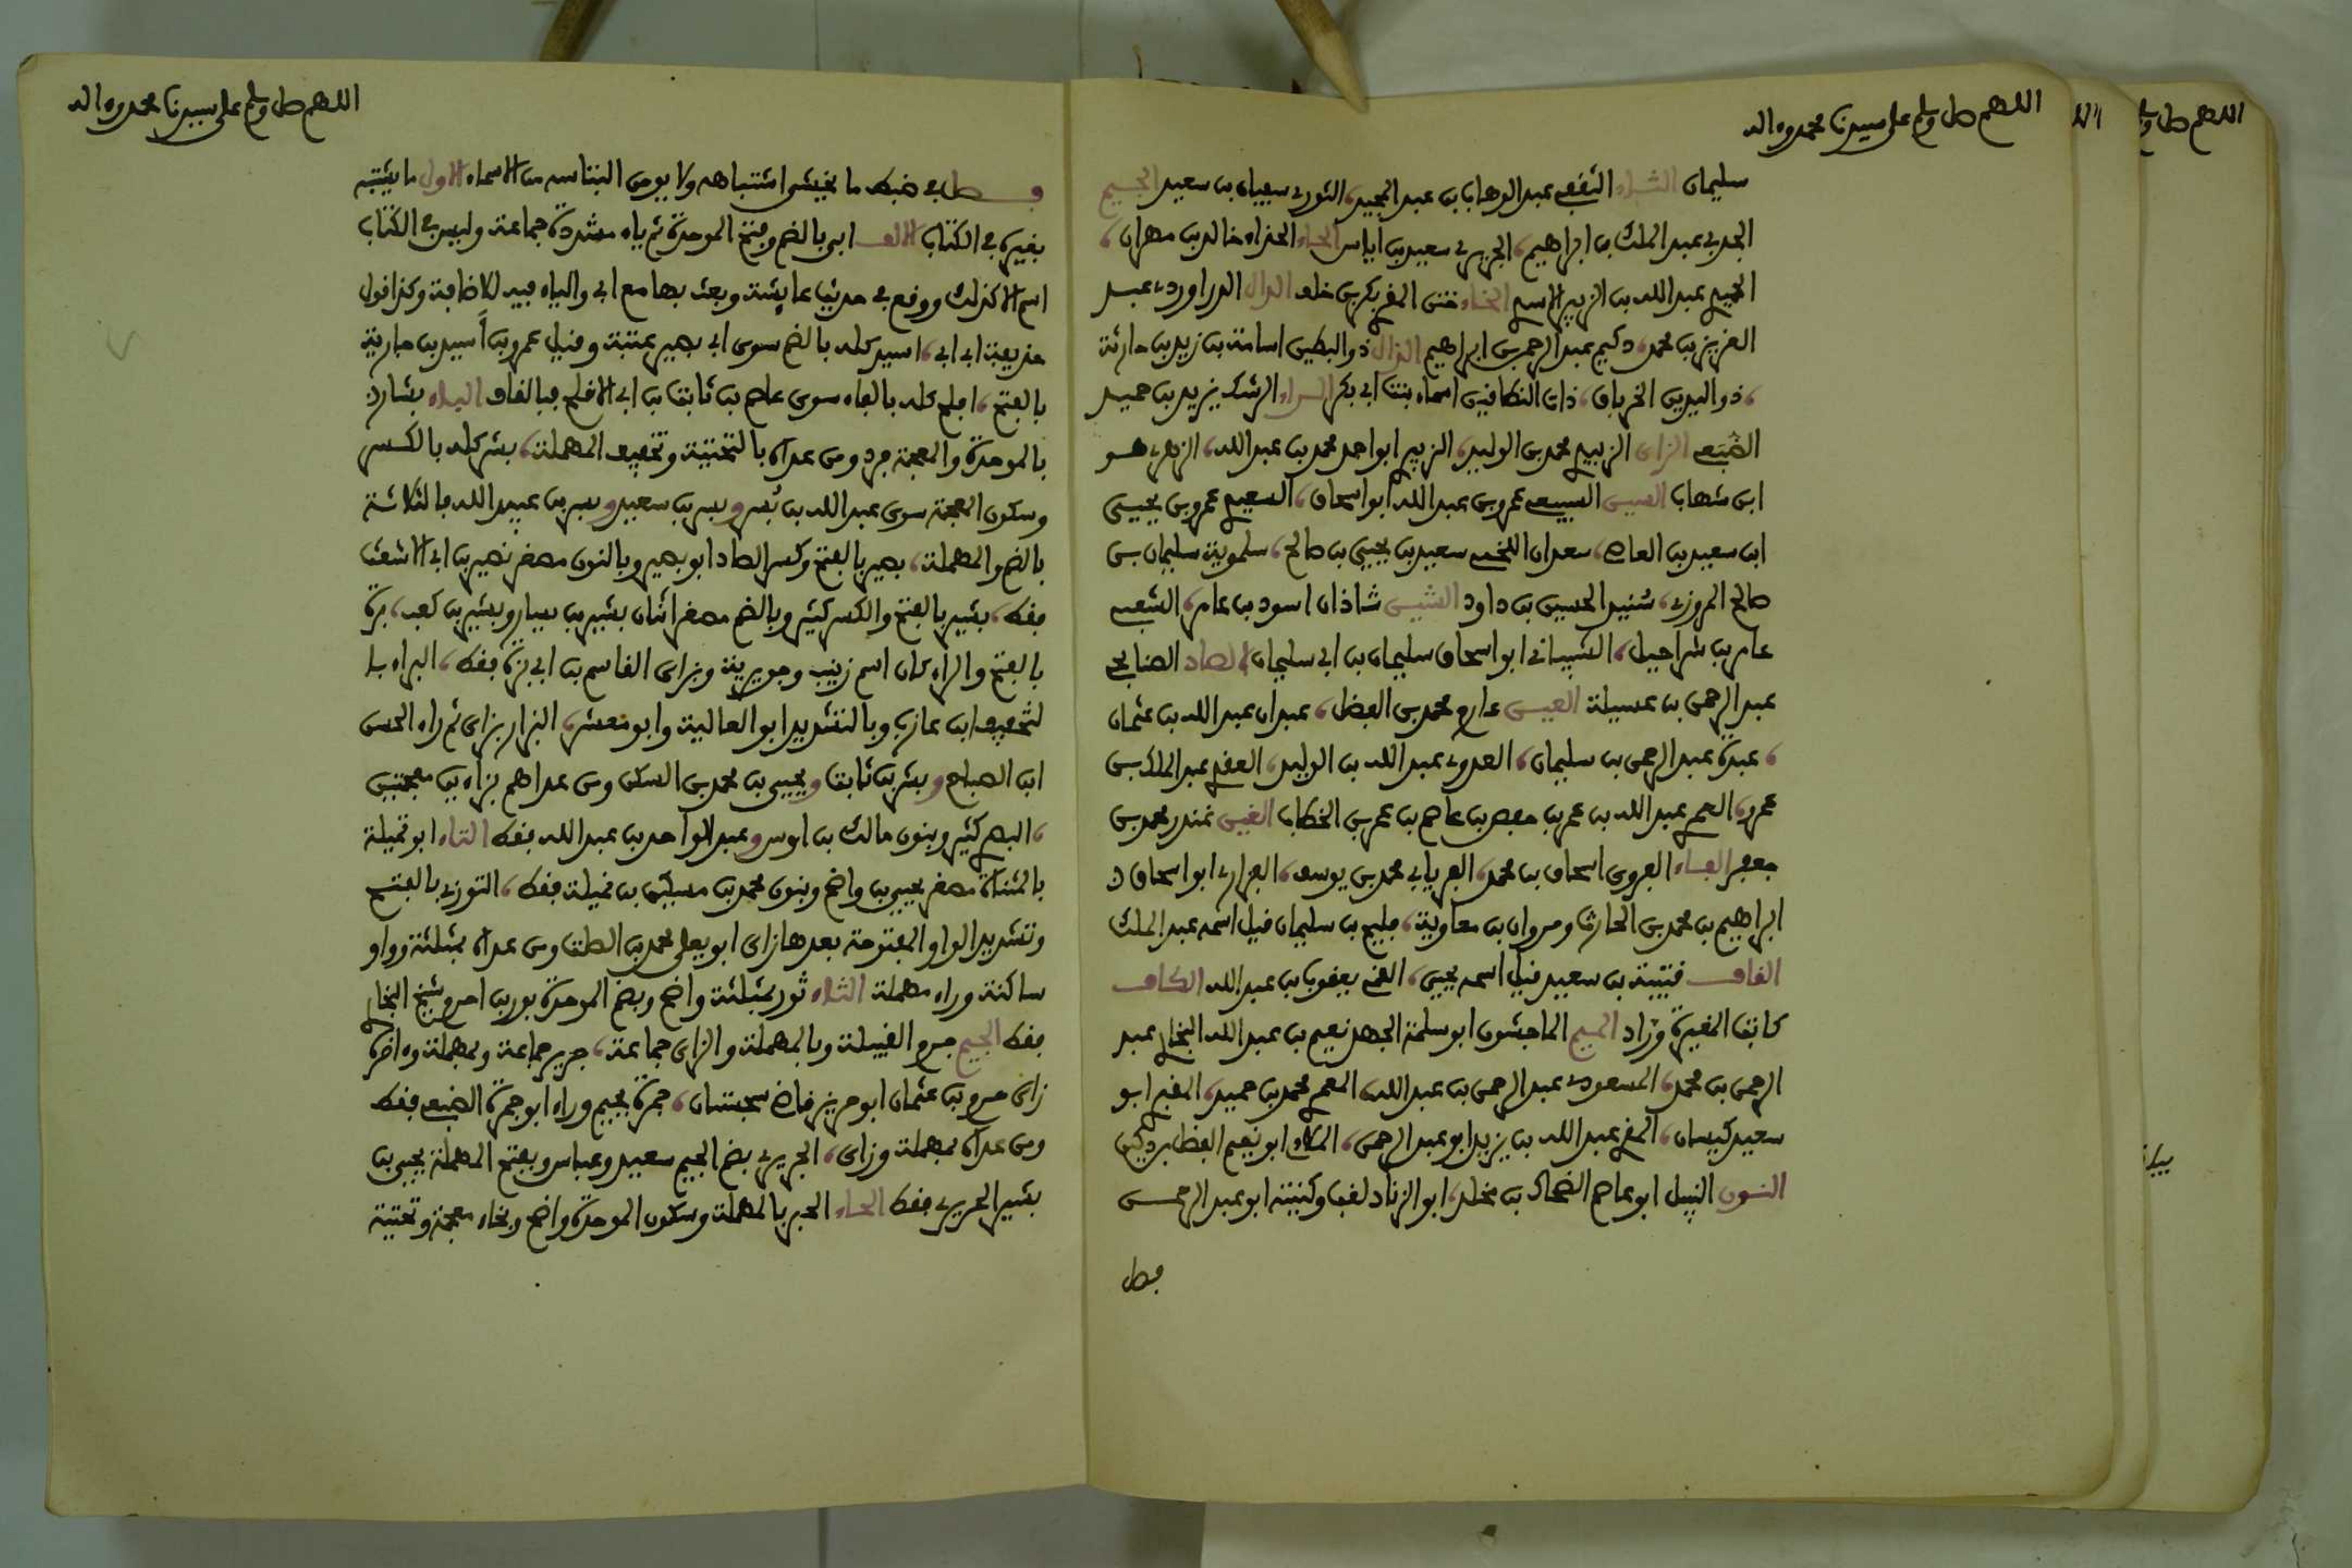 اللهم صل وسلم على سيدنا محمد وءاله
سليمان الثاء الثقفي عبد الوهاب بن عبد المجيد، الثوري سفيان بن سعيد الجيم
الجدي عبد الملك بن ابراهيم، الجريري سعيد بن اياس الحاء الحذاء خالد بن مهران،
الحميدي عبد الله بن الزبير الاسدي الخاء ختن المقري بكر بن خلف الدال الدراوردي عبد
العزيز بن محمد، دحيم عبد الرحمن بن ابراهيم الذال ذو البطين اسامة بن زيد بن حارثة
، ذو اليدين الخرباق، ذات النطاقين اسماء بنت ابي بكر الراء الرشك يزيد بن حميد
الضبعي الزاي الزبيدي محمد بن الوليد، الزبيري ابو احمد محمد بن عبد الله، الزهري هو
ابن شهاب السين السبيعي عمرو بن عبد الله ابو اسحاق، السعيدي عمرو بن يحيى
ابن سعيد بن العاص، سعدان اللخمي سعيد بن يحيى بن صالح، سلموية سليمان بن
صالح المروزي، سنيد الحسين بن داود الشين شاذان اسود بن عامر، الشعبي
عامر بن شراحيل، الشيباني ابو اسحاق سليمان بن ابي سليمان الصاد الصنابحي
عبد الرحمن بن عسيلة العين عارم محمد بن الفضل، عبدان عبد الله بن عثمان
، عبدة عبد الرحمن بن سليمان، العدوي عبد الله بن الوليد، العقدي عبد الملك بن
عمرو، العمري عبد الله بن عمر بن حفص بن عاصم بن عمر بن الخطاب الغين غندر محمد بن
جعفر الفاء الفروي اسحاق بن محمد، الفريابي محمد بن يوسف، الفزاري ابو اسحاق
ابراهيم بن محمد بن الحارث ومروان بن معاوية، فليح بن سليمان قيل اسمه عبد الملك
القاف قتيبة بن سعيد قيل اسمه يحيى، القمي يعقوب بن عبد الله الكاف
كاتب المغيرة وراد الميم الماجشون ابو سلمة المجمر نعيم بن عبد الله المحاربي عبد
الرحمن بن محمد، المسعودي عبد الرحمن بن عبد الله، المعمري محمد بن حميد، المقبري ابو
سعيد كيسان، المقري عبد الله بن يزيد ابو عبد الرحمن، الملاءي ابو نعيم الفضل بن دكين
النون النبيل ابو عاصم الضحاك بن مخلد، ابو الزناد لقب وكنيته ابو عبد الرحمن
فصل
اللهم صل وسلم على سيدنا محمد وءاله
فصل في ضبط ما يخشى اشتباهه ولا يومن التباسه من الاسماء الاول ما يشتبه
بغيره في الكتاب الالف ابي بالضم وفتح الموحدة ثم ياء مشددة جماعة وليس في الكتاب
اسم الا كذلك ووقع في حديث عايشة وبعث بها مع ابي والياء فيه للاضافة وكذا قول
حذيفة ابي ابي، اسيد كله بالضم سوى ابي بصير عتبة وقيل عمرو بن اَسيد بن جارية
بالفتح، افلح كله بالفاء سوى عاصم بن ثابت بن ابي الاقلح فبالقاف الباء بشار
بالموحدة والمعجمة فرد ومن عداه بالتحتية وتخفيف المهملة، بشر كله بالكسر
وسكون المعجمة سوى عبد الله بن بُسر وبسر بن سعيد وبسر بن عبيد الله فالثلاثة
بالضم والمهملة، بصير بالفتح وكسر الصاد ابو بصير وبالنون مصغر نصير بن ابي الاشعث
فقط، بشير بالفتح والكسر كثير وبالضم مصغر اثنان بشير بن يسار وبشير بن كعب، برة
بالفتح والراء كان اسم زينب وجويرية وبزاى القاسم بن ابي بزة فقط، البراء با
لتخفيف ابن عازب وبالتشديد ابو العالية وابو معشر، البزار بزاى ثم راء الحسن
ابن الصباح وبشر بن ثابت ويحيى بن محمد بن السكن ومن عداهم بزاءين معجمتين
، البصري كثير وبنون مالك بن اوس وعبد الواحد بن عبد الله فقط التاء ابو تميلة
بالمثناة مصغر يحيى بن واضح وبنون محمد بن مسكين بن نميلة فقط، التوزي بالفتح
وتشديد الواو المفتوحة بعدها زاى ابو يعلى محمد بن الصلت ومن عداه بمثلثة وواو
ساكنة وراء مهملة الثاء ثور بمثلثة واضح وبضم الموحدة بور بن احرم شيخ البخاري
فقط الجيم جرم القبيلة وبالمهملة والزاى جماعة، جرير جماعة وبمهملة وءاخره
زاى حريز بن عثمان ابو حريز قاضي سجستان، جمرة بجيم وراء ابو جمرة الضبعي فقط
ومن عداه بمهملة وزاى، الجريري بضم الجيم سعيد وعباس وبفتح المهملة يحيى بن
بشير الحريري فقط الحاء الحبر بالمهملة وسكون الموحدة واضح وبخاء معجمة وتحتية